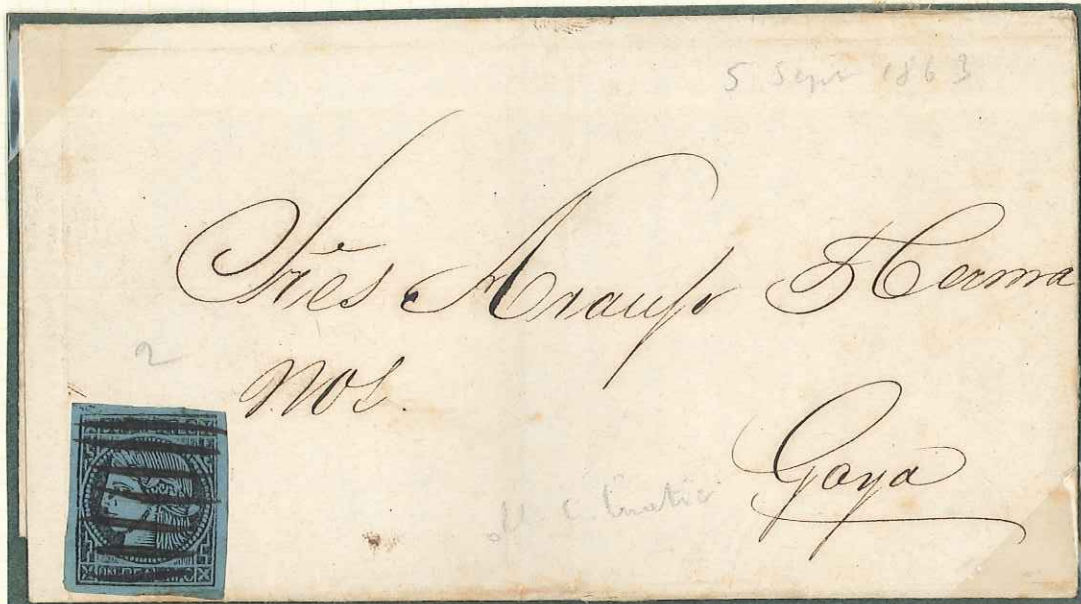 5 Sept 1863
Sres. Araujo Herma
nos.
2
Goya